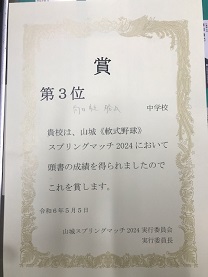 賞
第３位
中学校
貴校は、山城《軟式野球》
スプリングマッチ2024において
頭書の成績を得られましたので
これを賞します。
令和６年５月５日
山城スプリングマッチ2024 実行委員会
実行委員長